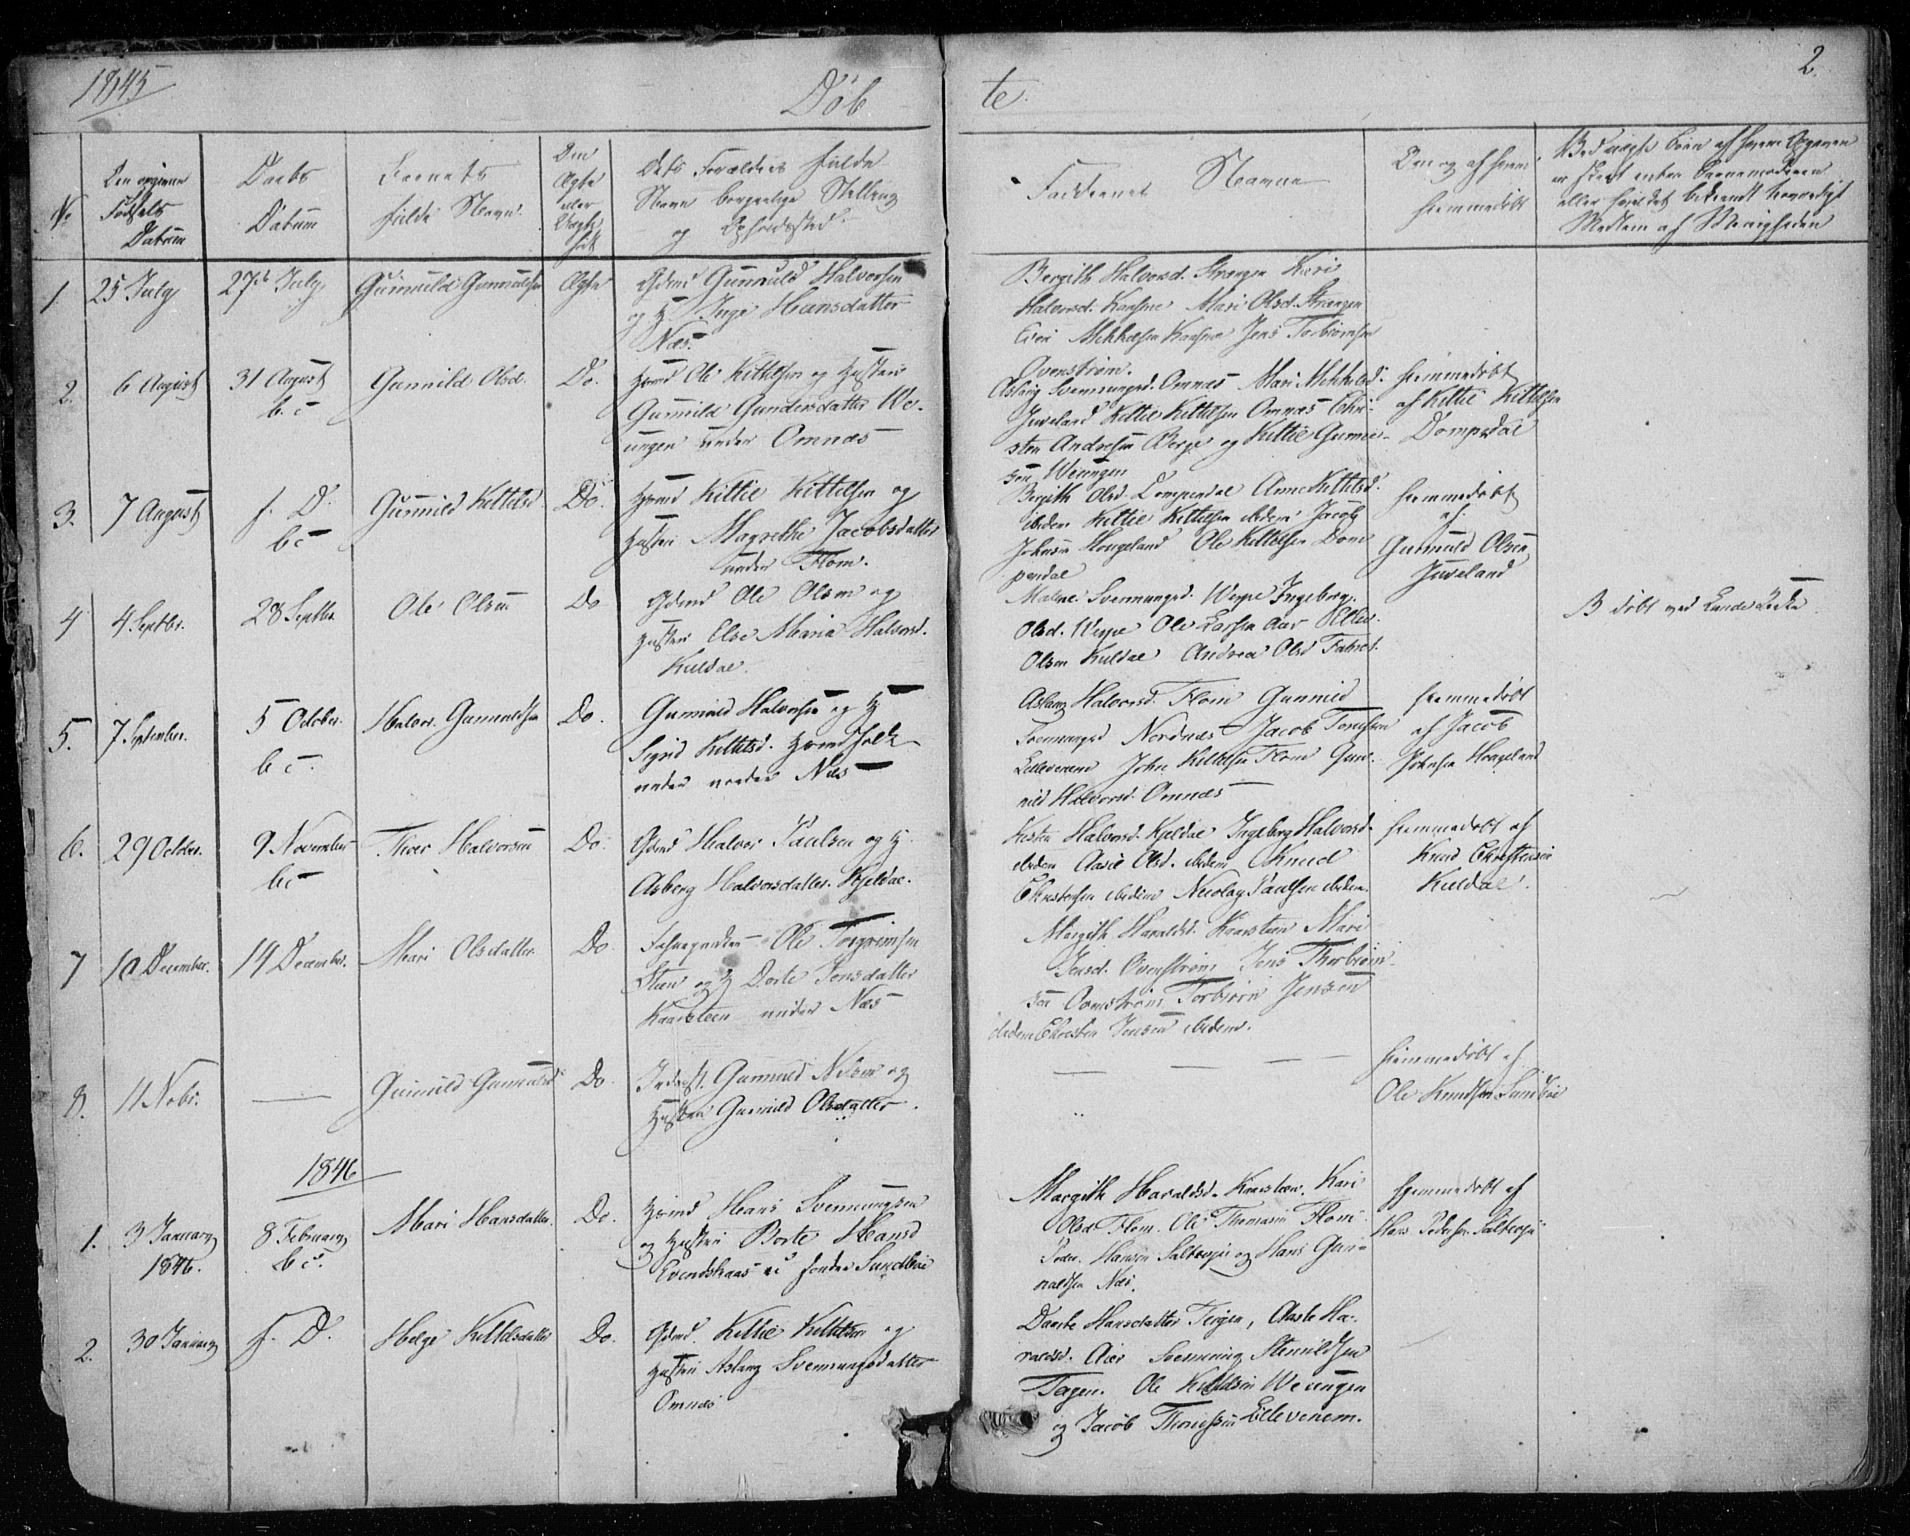 1845
Døb
te.
2.
No
Den opgivne
Fødsels
Datum
Daabs
Datum
Barnets
fulde Navn.
Om
Ægte
eller
Uægte
født
Dets Forældres fulde
Navn borgerlige Stilling
og Opholdssted
Faddernes Navne
Om og af hvem
hjemmedøbt
Medlem af Menigheden
1.
25 July
27de July
Gunnuld Gunnuldsen
Ægte
Gdmd Gunnuld Halvorsen
og H. Inge Hansdatter
Næs.
Bergith Halvorsd. Strangen Kari
Halvorsd. Mari Olsd. Strangen
Jens Torbiørnsen
Ovenstrøm.
2.
6 August
31 August
b. c
Gunnild Olsd.
Do.
Hmd Ole Kittelsen og Hustru
Gunnild Gundersdatter We-
ungen under Omnæs
Aslaug Svenningsd. Omnæs Mari Mikkelsd.
Juveland Kittil Kittelsen Omnæs Chri-
sten Andersen Berge og Kittil Gunni-
sen Weungen
hjemmedøbt
af Kittil Kittelsen
Dompedal
3.
7 August
s. D.
b c
Gunnild Kittelsd
Do.
Hmd Kittil Kittelsen og
Hustru Magrethe Jacobsdatter
under Flom.
Bergith Olsd. Dompendal Anne Kittelsd.
ibidem Kittil Kittelsen ibidem Jacob
Johnsen Haugeland Ole Kittelsen Dom
pendal
hjemmedøbt
af
Gunnuld Olsen
Juveland
4
4 Septbr.
28 Septbr.
Ole Olsen
Do
Gdmd Ole Olsen og
Hustru Else Maria Halvorsd.
Kildal.
Malene Svenningsd. Weype Ingeborg
Olsd. Weype Ole Larsen Aar
Olsen Kildal Andrea Olsd
B døbt ved Lunde Kirke
5.
7 September.
5 October.
b c.
Halvor Gunnuldsen
Do.
Gunnuld Halvorsen og H
Sigrid Kittelsd. Hmdfolk
under nordre Næs
Aslaug Halvorsd. Flom Gunnild
Svenningsd Nordnæs Jacob Tomesen
Lillevenem John Kittelsen Flom Gun-
nild Halvorsd. Omnæs
hjemmedøbt
af Jacob
Johnsen Haugeland
6.
29 October.
9 November
bc
Thor Halvorsen
Do.
Gdmd Halvor Paulsen og H.
Asberg Halvorsdatter. Kjeldal.
Kisten Halvorsd. Kjeldal Ingeborg Halvorsd.
ibidem Aase Olsd. ibidem Knud
Christensen ibidem Nicolay Paulsen ibidem.
hjemmedøbt af
Knud Christensen
Kildal.
7
10 December.
14 December.
Mari Olsdatter.
Do.
Ole Torgrimsen
Steen og H Dorte Jensdatter
Kaarsteen under Næs
Margith Haraldsd. Kaarsteen Mari
Jensd. Ovenstrøm Jens Thorbiørn-
sen Ovenstrøm Torbiørn Jensen
ibidem Christen Jensen ibidem.
8.
11 Nobr.
Gunnild Gunnulsd
Do.
Inderst. Gunnuld Nilsen og
Hustru Gunnild Olsdatter.
hjemmedøbt af
Ole Knudsen Sundbøe
1846
1.
3 January
1846.
8 February
b c.
Mari Hansdatter.
Do.
Hmd Hans Svenningsen
og Hustru Dorte Hansd
søndre Sundbøe
Margith Haraldsd. Kaarsteen. Kari
Olsd Flom. Ole Thomesen Flom
Peder Hansen Saltverøe og Hans Gun-
nuldsen Næs.
hjemmedøbt af
Hans Pedersen Saltverøe
2.
30 January
s. D.
Helge Kittelsdatter
Do.
Gdmd. Kittil Kittelsen og
Hustru Aslaug Svenningsdatter
Omnæs
Daarte Hansdatter Teigen, Aaste Ha-
raldsd. Aar Svenning Stenildsen
Teigen. Ole Kittelsen Weungen
og Jacob Thomesen Lillevenem.